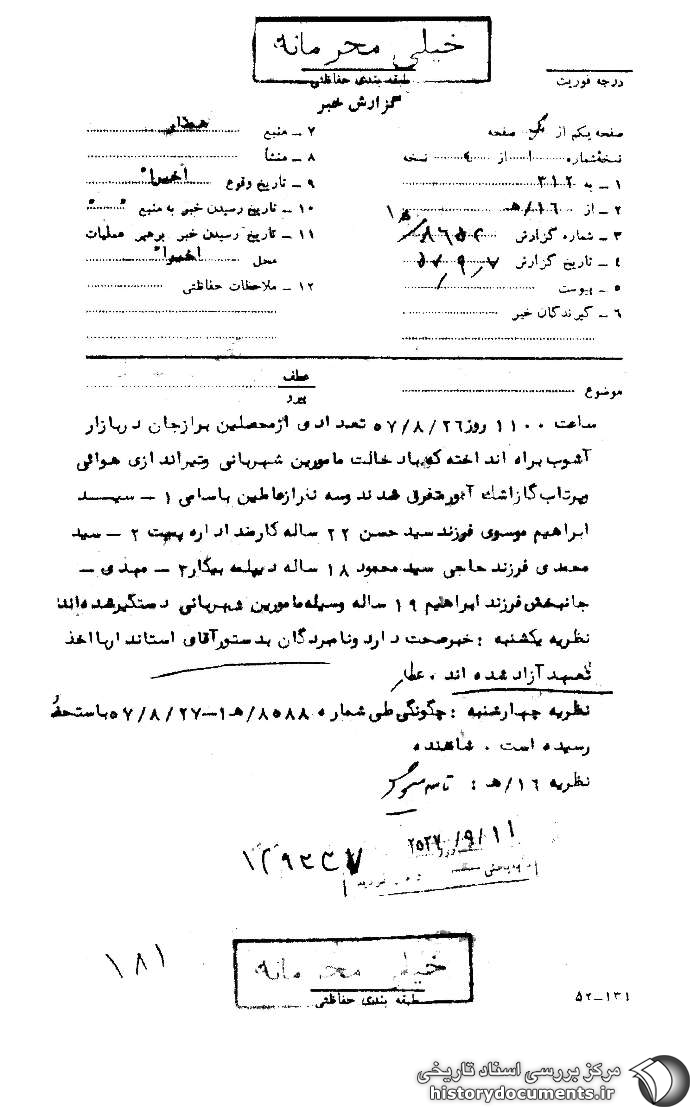 خیلی محرمانه
طبقه بندی حفاظتی
درجه فوریت
گزارش خبر
صفحه یکم از یک صفحه
نسخهٔ شماره ۱ از ۴ نسخه
۱ – به ۳۱۲
۲ – از ۱۶/هـ
۳ – شماره گزارش ۸۶۵۲/
۴ – تاریخ گزارش ۵۷/۹/۷
۵ – پیوست
۶ – گیرندگان خبر
۷ – منبع
۸ – منشأ
۹ – تاریخ وقوع اخیرا"
۱۰ – تاریخ رسیدن خبر به منبع " "
۱۱ – تاریخ رسیدن خبر برهبر عملیات
محل اخیرا"
۱۲ – ملاحظات حفاظتی
موضوع
عطف
پیرو
ساعت ۱۱۰۰ روز ۵۷/۸/۲۶ تعدادی ازمحصلین برازجان دربازار
آشوب براه انداخته که باد خالت مامورین شهربانی وتیراندازی هوائی
وپرتاب گازاشک آور متفرق شدند وسه نفرازعاملین باسامی ۱ – سید
ابراهیم موسوی فرزند سید حسن ۲۲ ساله کارمند اداره پست ۲ – سید
محمدی فرزند حاجی سید محمود ۱۸ ساله دیپلمه بیکار۳ – مهدی –
جانبخش فرزند ابراهیم ۱۹ ساله وسیله مامورین شهربانی دستگیرشده اند
نظریه یکشنبه : خبرصحت دارد ونامبردگان بدستورآقای استاندارباخذ
تعهد آزاد شده اند . عطار
نظریه چهارشنبه : چگونگی طی شماره ۸۵۸۸/هـ۱–۵۷/۸/۲۷ باستحضار
رسیده است . شاهنده
نظریه ۱۶/هـ :
۲۵۳۷/۹/۱۱
۱۲۹۲۳۷
۱۸۱
خیلی محرمانه
طبقه بندی حفاظتی
۵۲–۱۳۱
مرکز بررسی اسناد تاریخی
historydocuments.ir